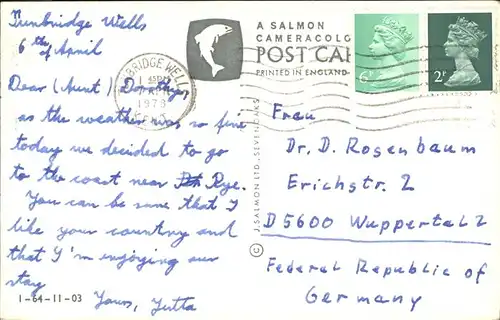 Tunbridge Wells
6th of April
Dear (Aunt) Dorothy,
as the weather was so fine
today we decided to go
to the coast near Rye.
You can be sure that I
like your country and
that I'm enjoying our
stay
Yours, Jutta
1-64-11-03
A SALMON
CAMERACOLO
POST CAR
PRINTED IN ENGLAND
BRIDGE WELL
1978
KENT
6P
2P
J. SALMON LTD., SEVENOAKS ©
Frau
Dr. D. Rosenbaum
Erichstr. 2
D 5600 Wuppertal 2
Federal Republic of
Germany